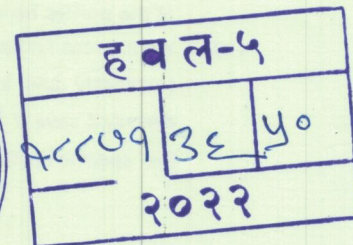 ह व ल-५
१८८७१ ३६ ५०
२०२२